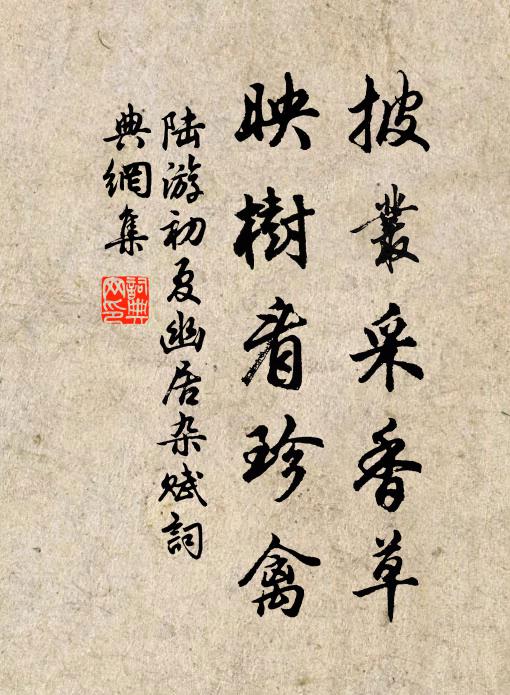 披叢采香草
映樹看珍禽
陸游初夏幽居杂赋詞
典網集
詞典
网印